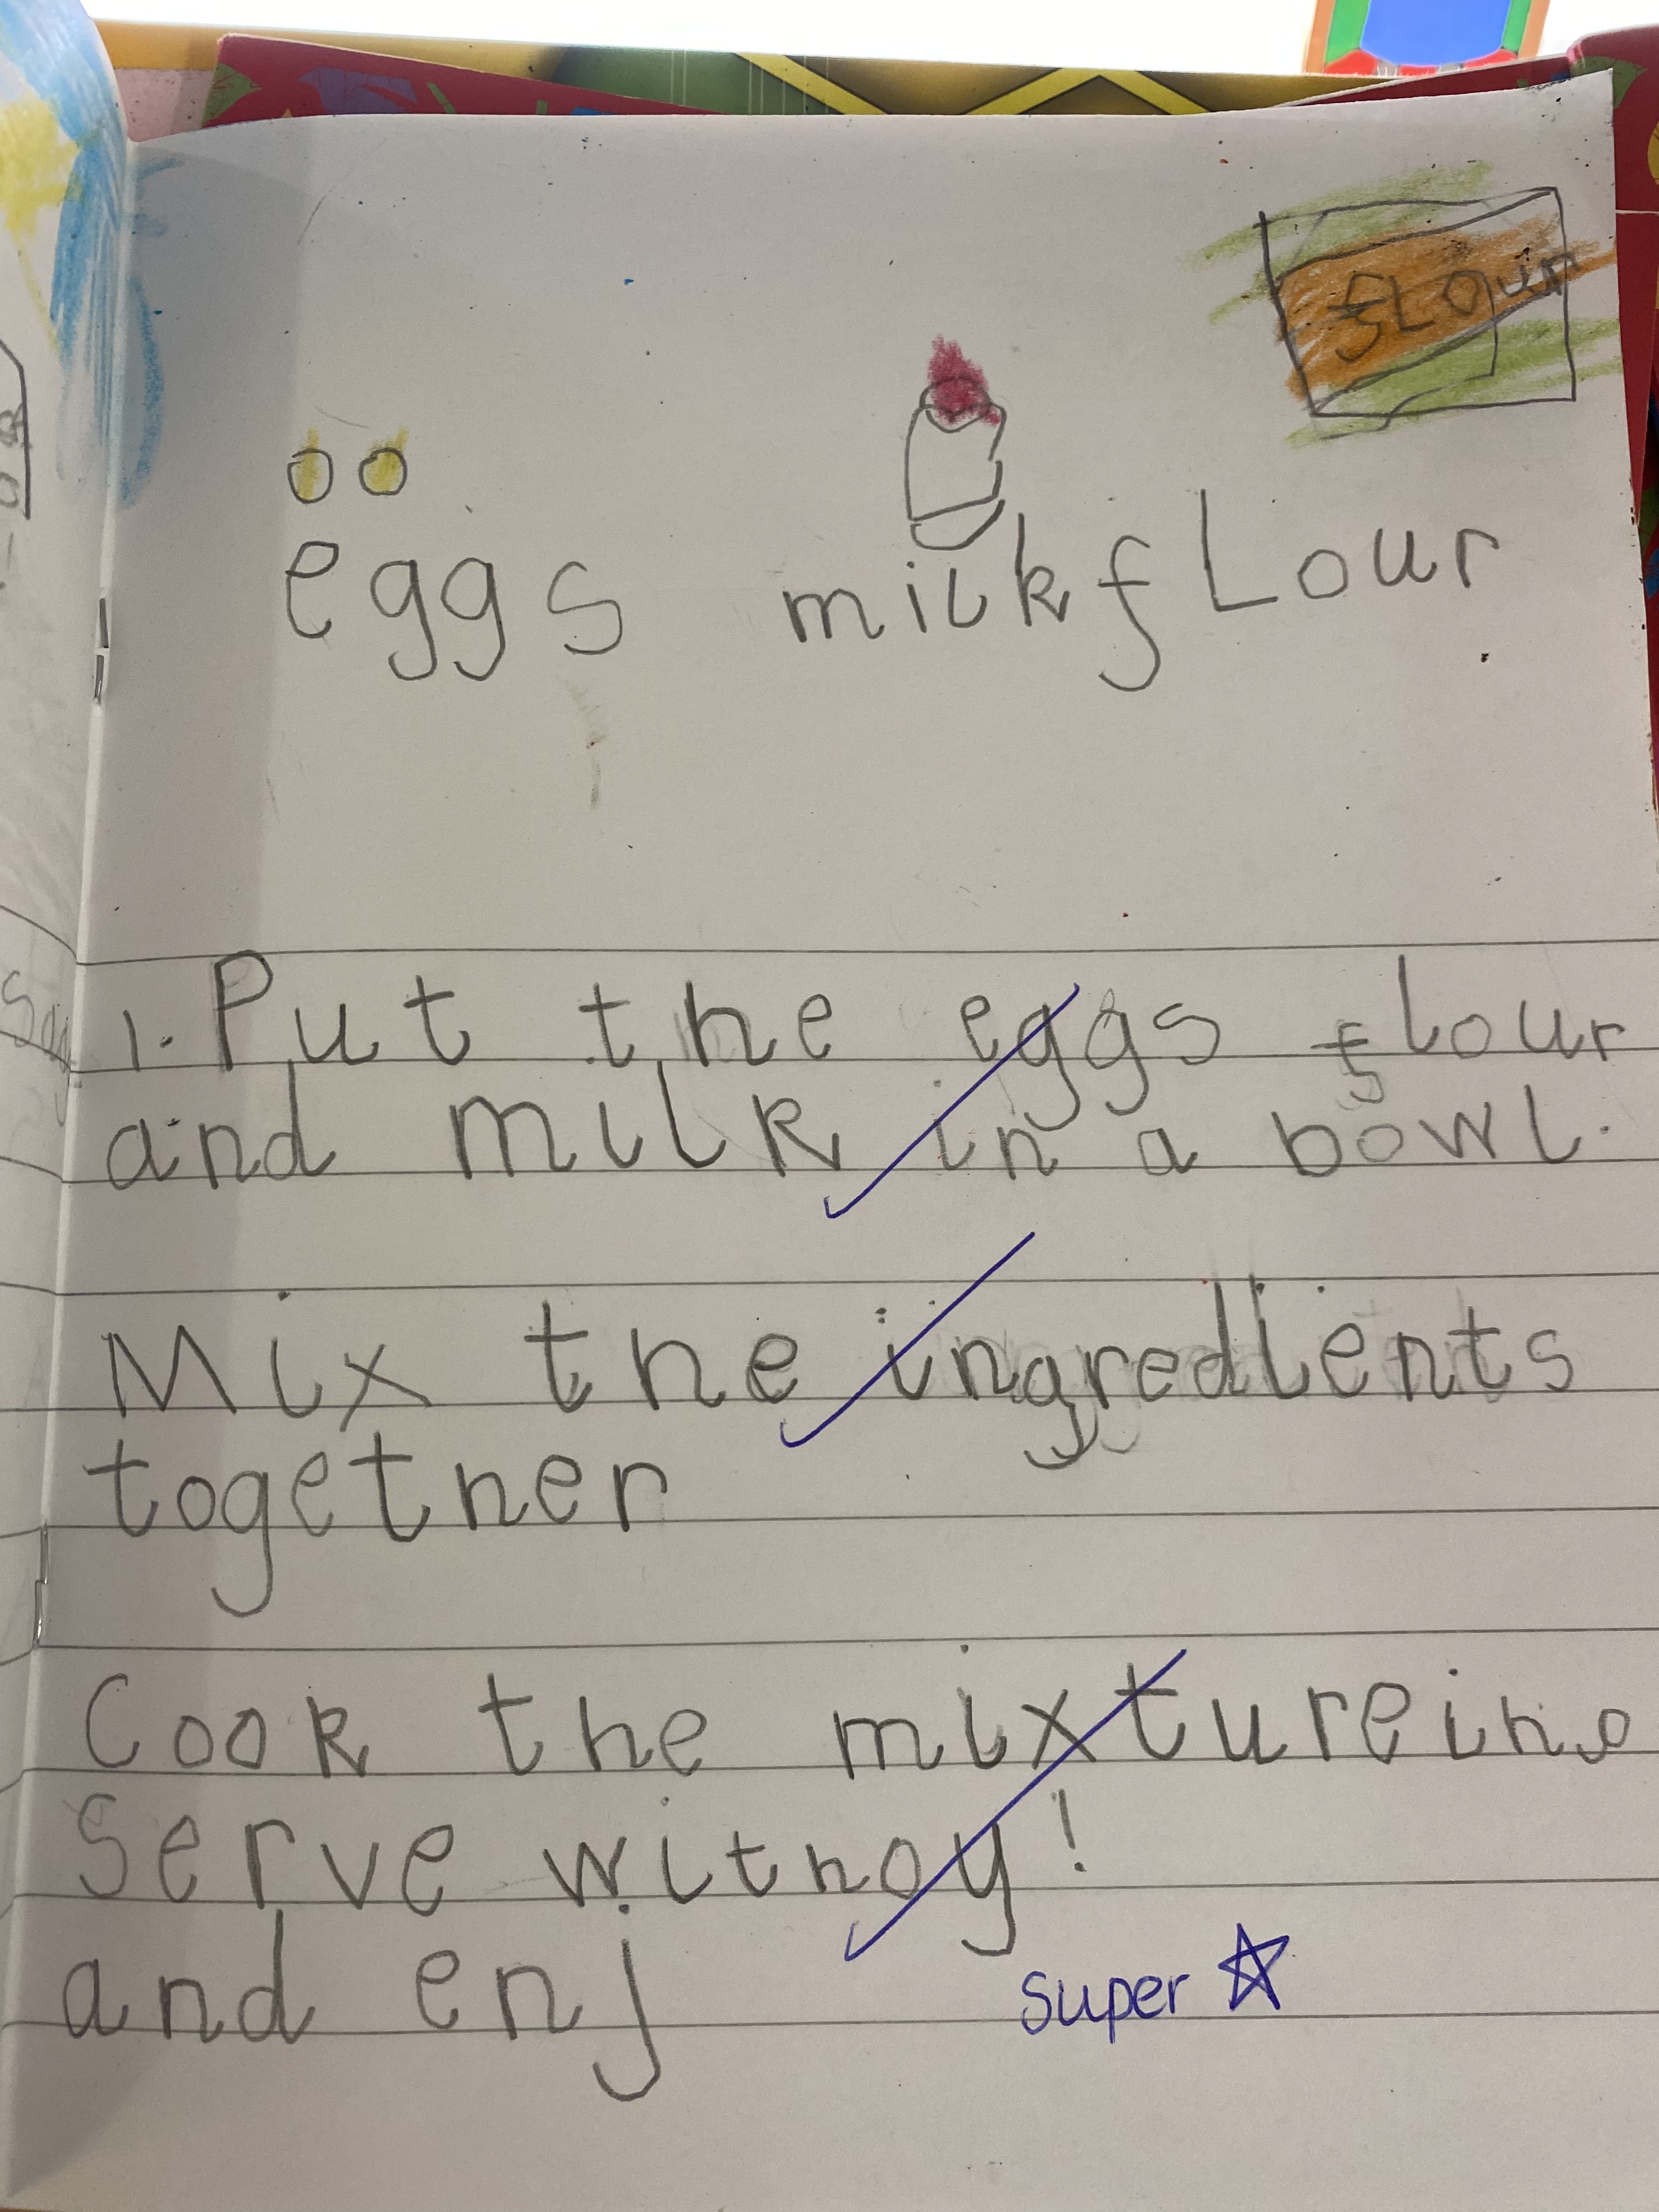 fLour
eggs milk fLour
1. Put the eggs flour
and milk in a bowl.
Mix the ingredients
together
Cook the mixture in a
Serve with oy!
and enj
super